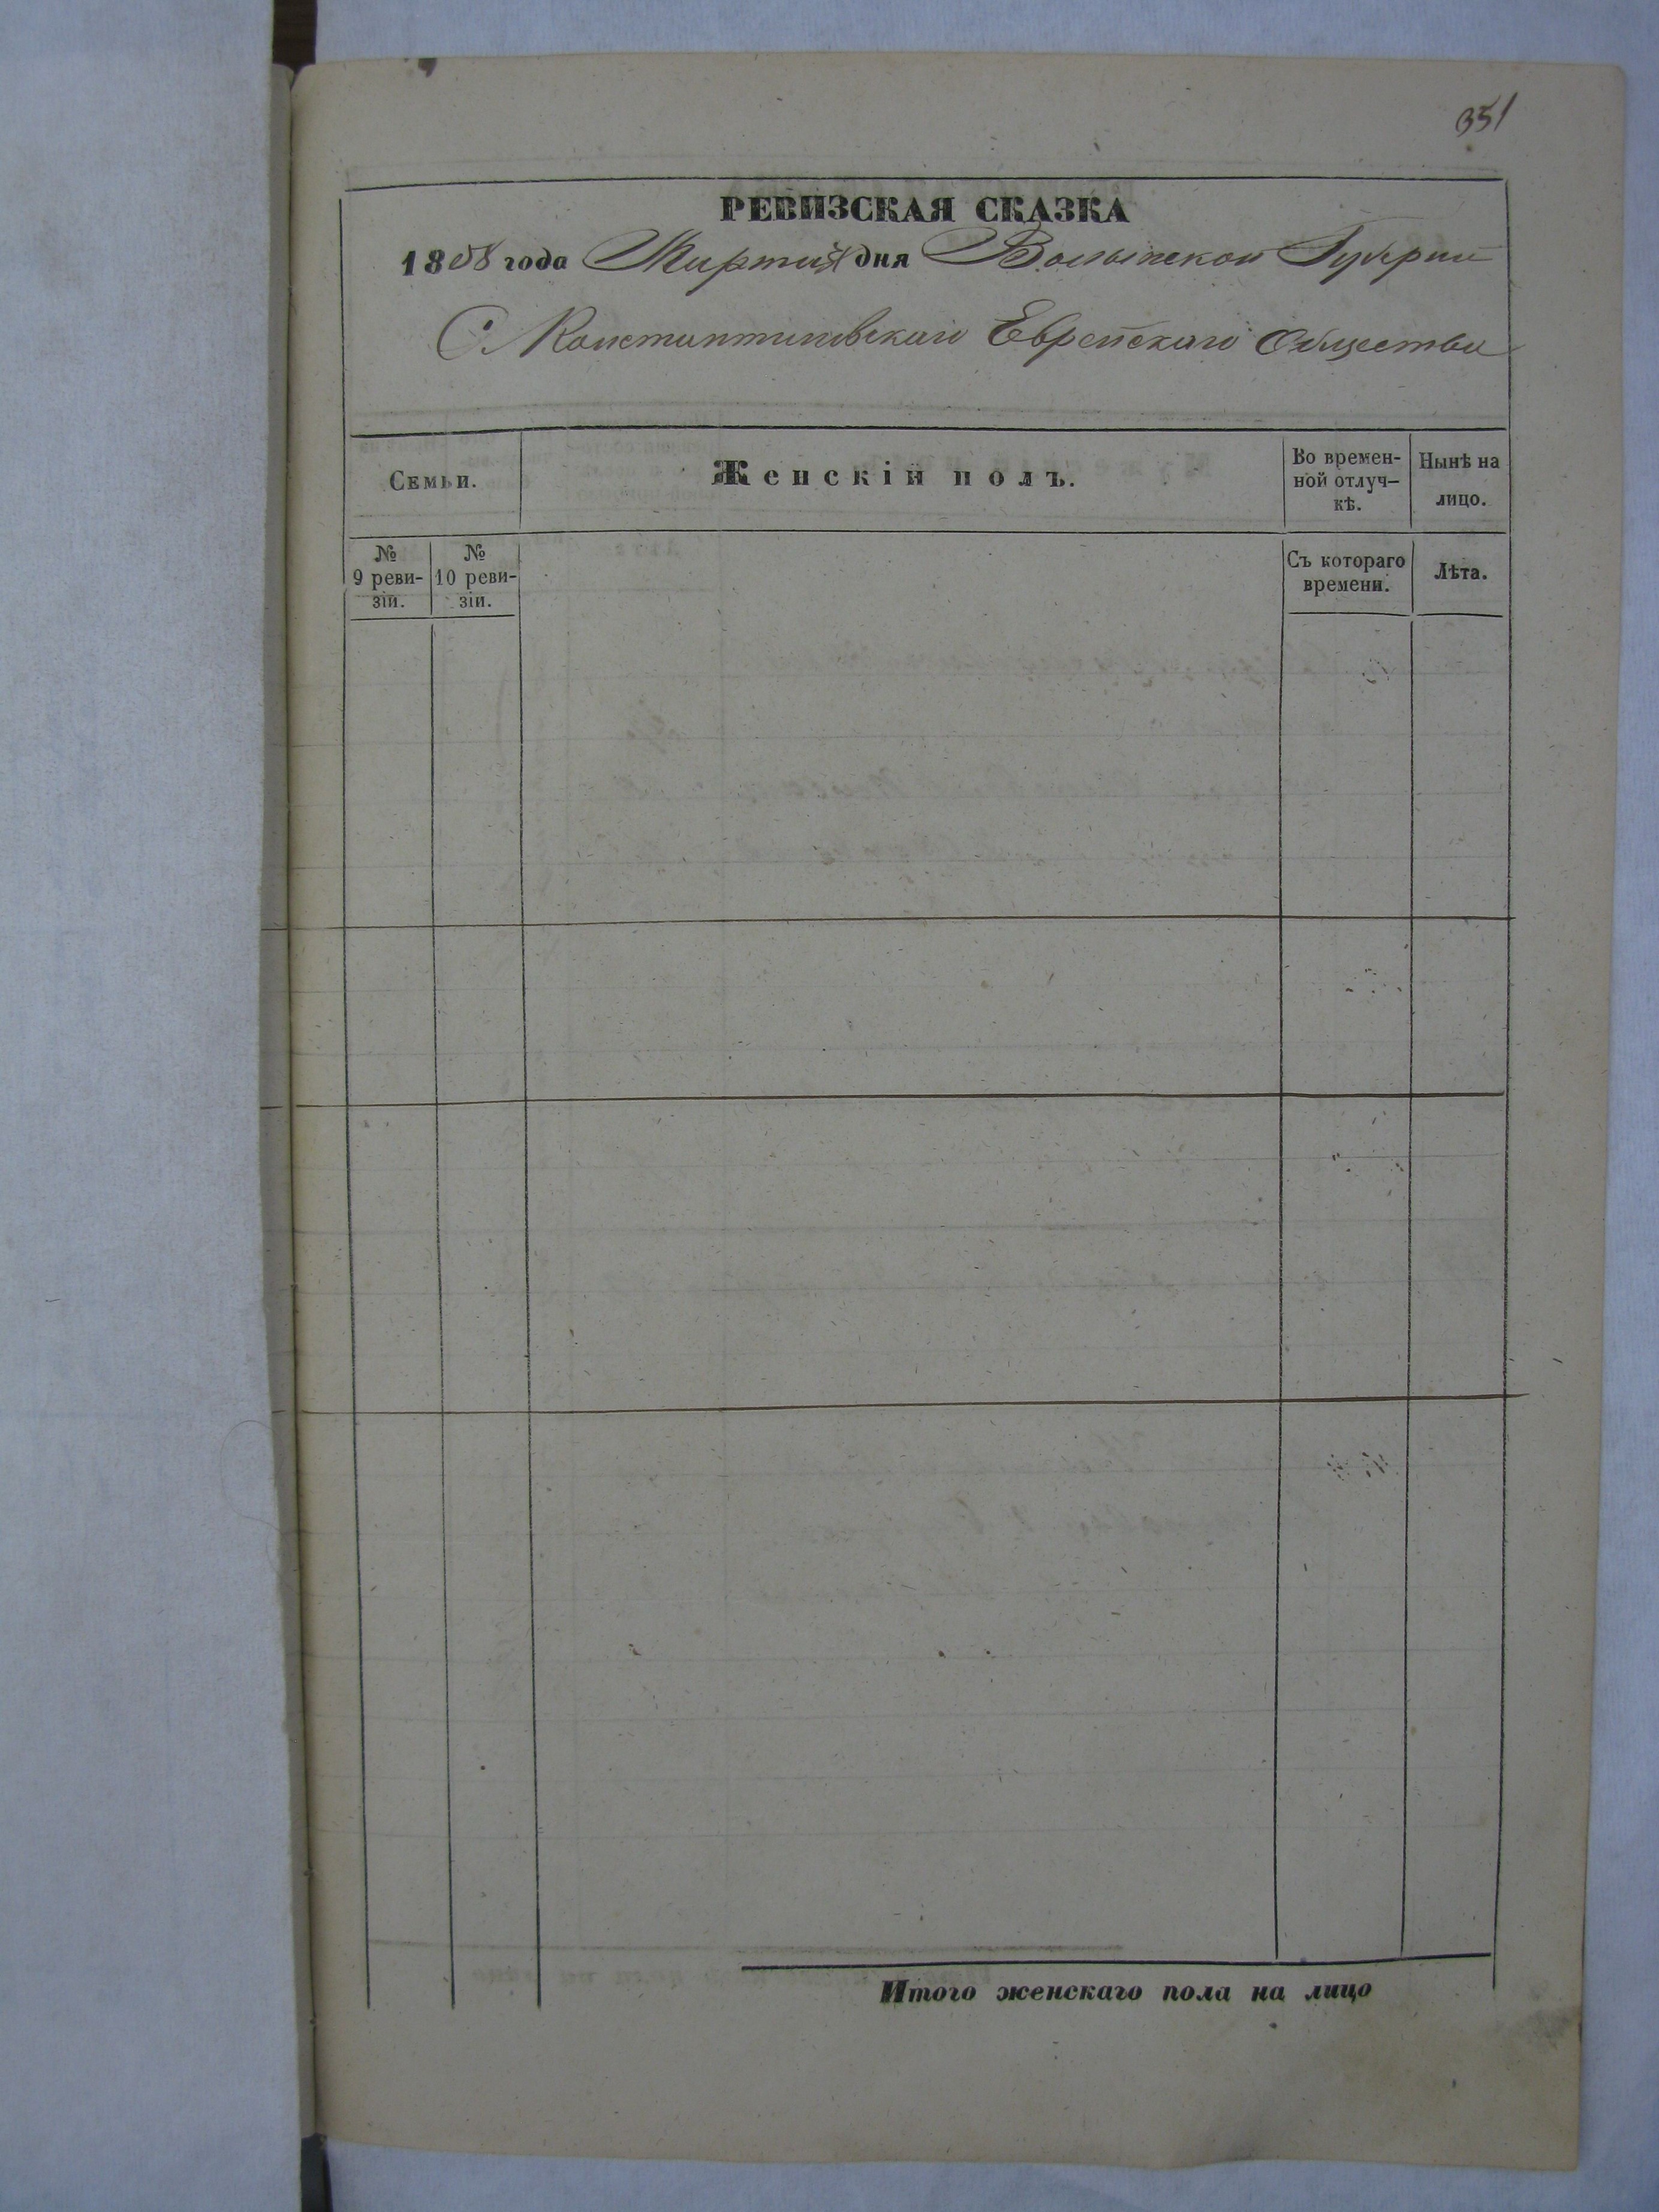 351
РЕВИЗСКАЯ СКАЗКА
1858 года Марта дня Волынской Губернии
С. Константиновскаго Еврейскаго Общества
Семьи.
Женскій полъ.
Во времен-
ной отлуч-
кѣ.
Нынѣ на
лицо.
№
9 реви-
зіи.
№
10 реви-
зіи.
Съ котораго
времени.
Лѣта.
Итого женскаго пола на лицо